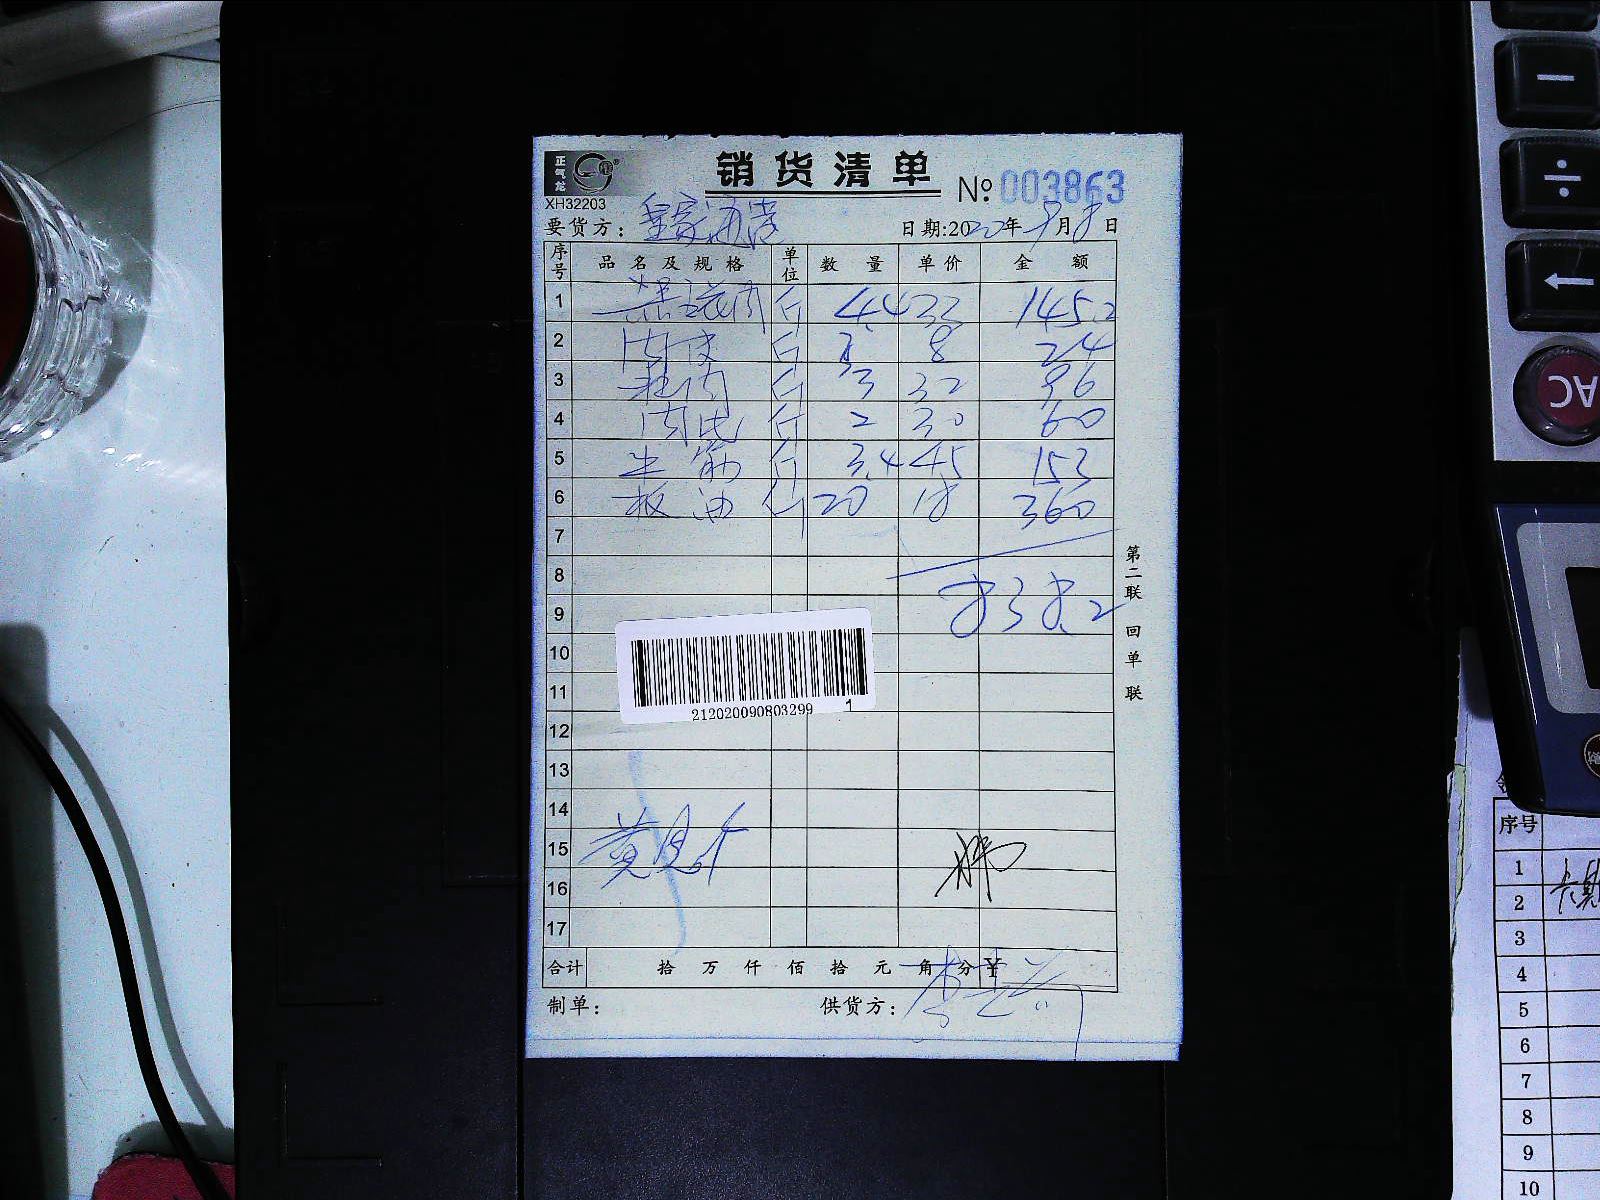 正气龙
XH32203
销货清单
№ 003863
要货方: 皇家
日期:2020年9月8日
序号 品名及规格 单位 数量 单价 金额
1 斤 4.4 33 145.2
2 肉皮 斤 3 8 24
3 斤 3 32 96
4 肉 斤 2 30 60
5 牛筋 斤 3.4 45 153
6 板油 斤 20 18 360
7
8
9 838.2
10
11
212020090803299 1
12
13
14
15 黄
16
17
合计 拾万仟佰拾元角分¥
制单: 供货方: 李
第二联 回单联
− ÷ ← AC
序号
1
2
3
4
5
6
7
8
9
10